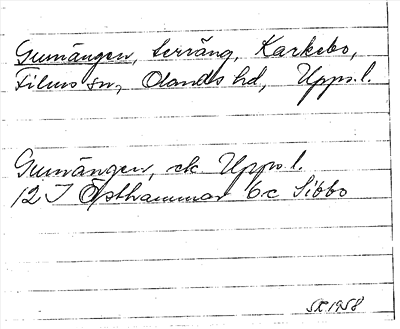 Gumängen, terräng, Karkebo,
Films sn, Olands hd, Upps. l.
Gumängen, ek. Upps. l.
12 I Östhammar 6c Sibbo
SR 1958